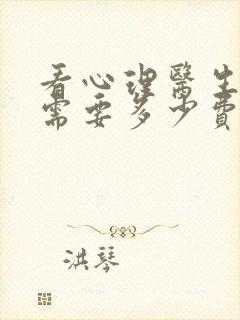 看心理醫生
需要多少費
洪琴